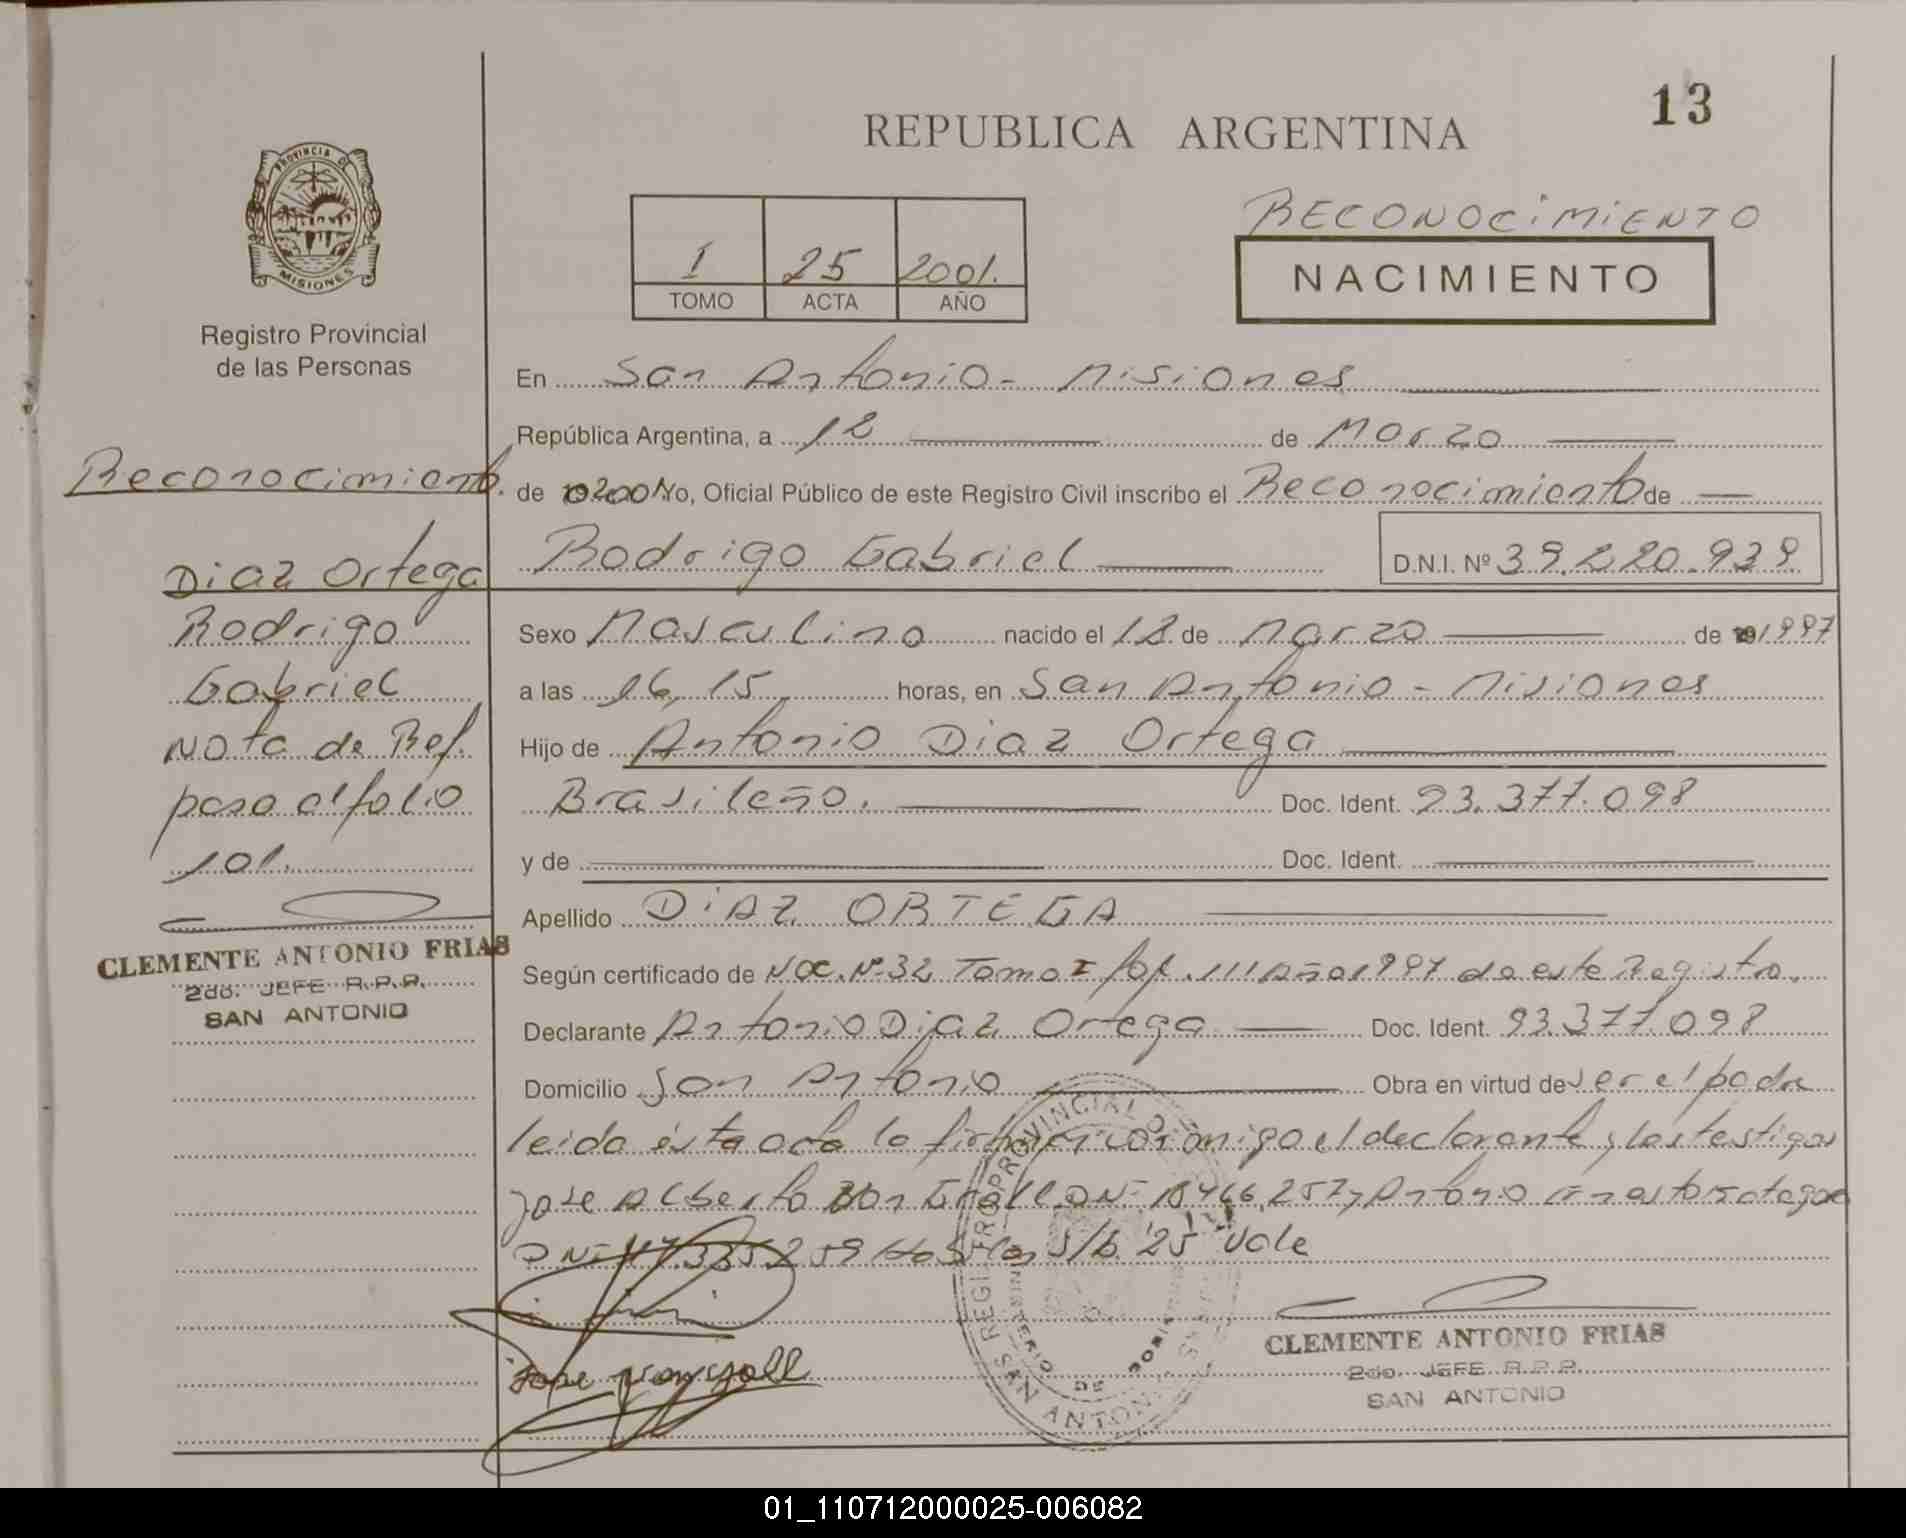 13
REPUBLICA ARGENTINA
PROVINCIA DE
MISIONES
RECONOCIMIENTO
NACIMIENTO
I 25 2001.
TOMO ACTA AÑO
Registro Provincial
de las Personas
En San Antonio - Misiones
República Argentina, a 12 de Marzo
Reconocimiento. de 2001 Yo, Oficial Público de este Registro Civil inscribo el Reconocimiento de
Rodrigo Gabriel D.N.I. Nº 39.220.939
Diaz Ortega
Rodrigo
Gabriel
Nota de Ref.
pasa al folio
101.
Sexo Masculino nacido el 12 de Marzo de 1997
a las 16,15 horas, en San Antonio - Misiones
Hijo de Antonio Diaz Ortega
Brasileño. Doc. Ident. 93.377.098
y de Doc. Ident.
Apellido DIAZ ORTEGA
Según certificado de Nac. Nº 32 Tomo I fol. 111 Año 1997 de este Registro.
Declarante Antonio Diaz Ortega Doc. Ident. 93.377.098
Domicilio San Antonio Obra en virtud de ser el padre
leida ésta acta la firman conmigo el declarante y los testigos
Jose Alberto Von Groll DNI 18466,257 y Antonio
DNI 17.335.259 s/b "25" Vale
CLEMENTE ANTONIO FRIAS
2do. JEFE R.P.P.
SAN ANTONIO
CLEMENTE ANTONIO FRIAS
2do. JEFE R.P.P.
SAN ANTONIO
01_110712000025-006082